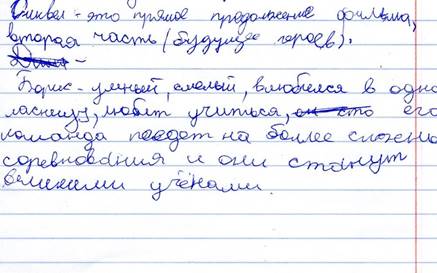 Сиквел - это прямое продолжение фильма,
вторая часть (будущее героев).
Борис - умный, смелый, влюбился в одно
классницу, любит учиться, его
команда поедет на более сложны
соревнования и они станут
великими учёнами.